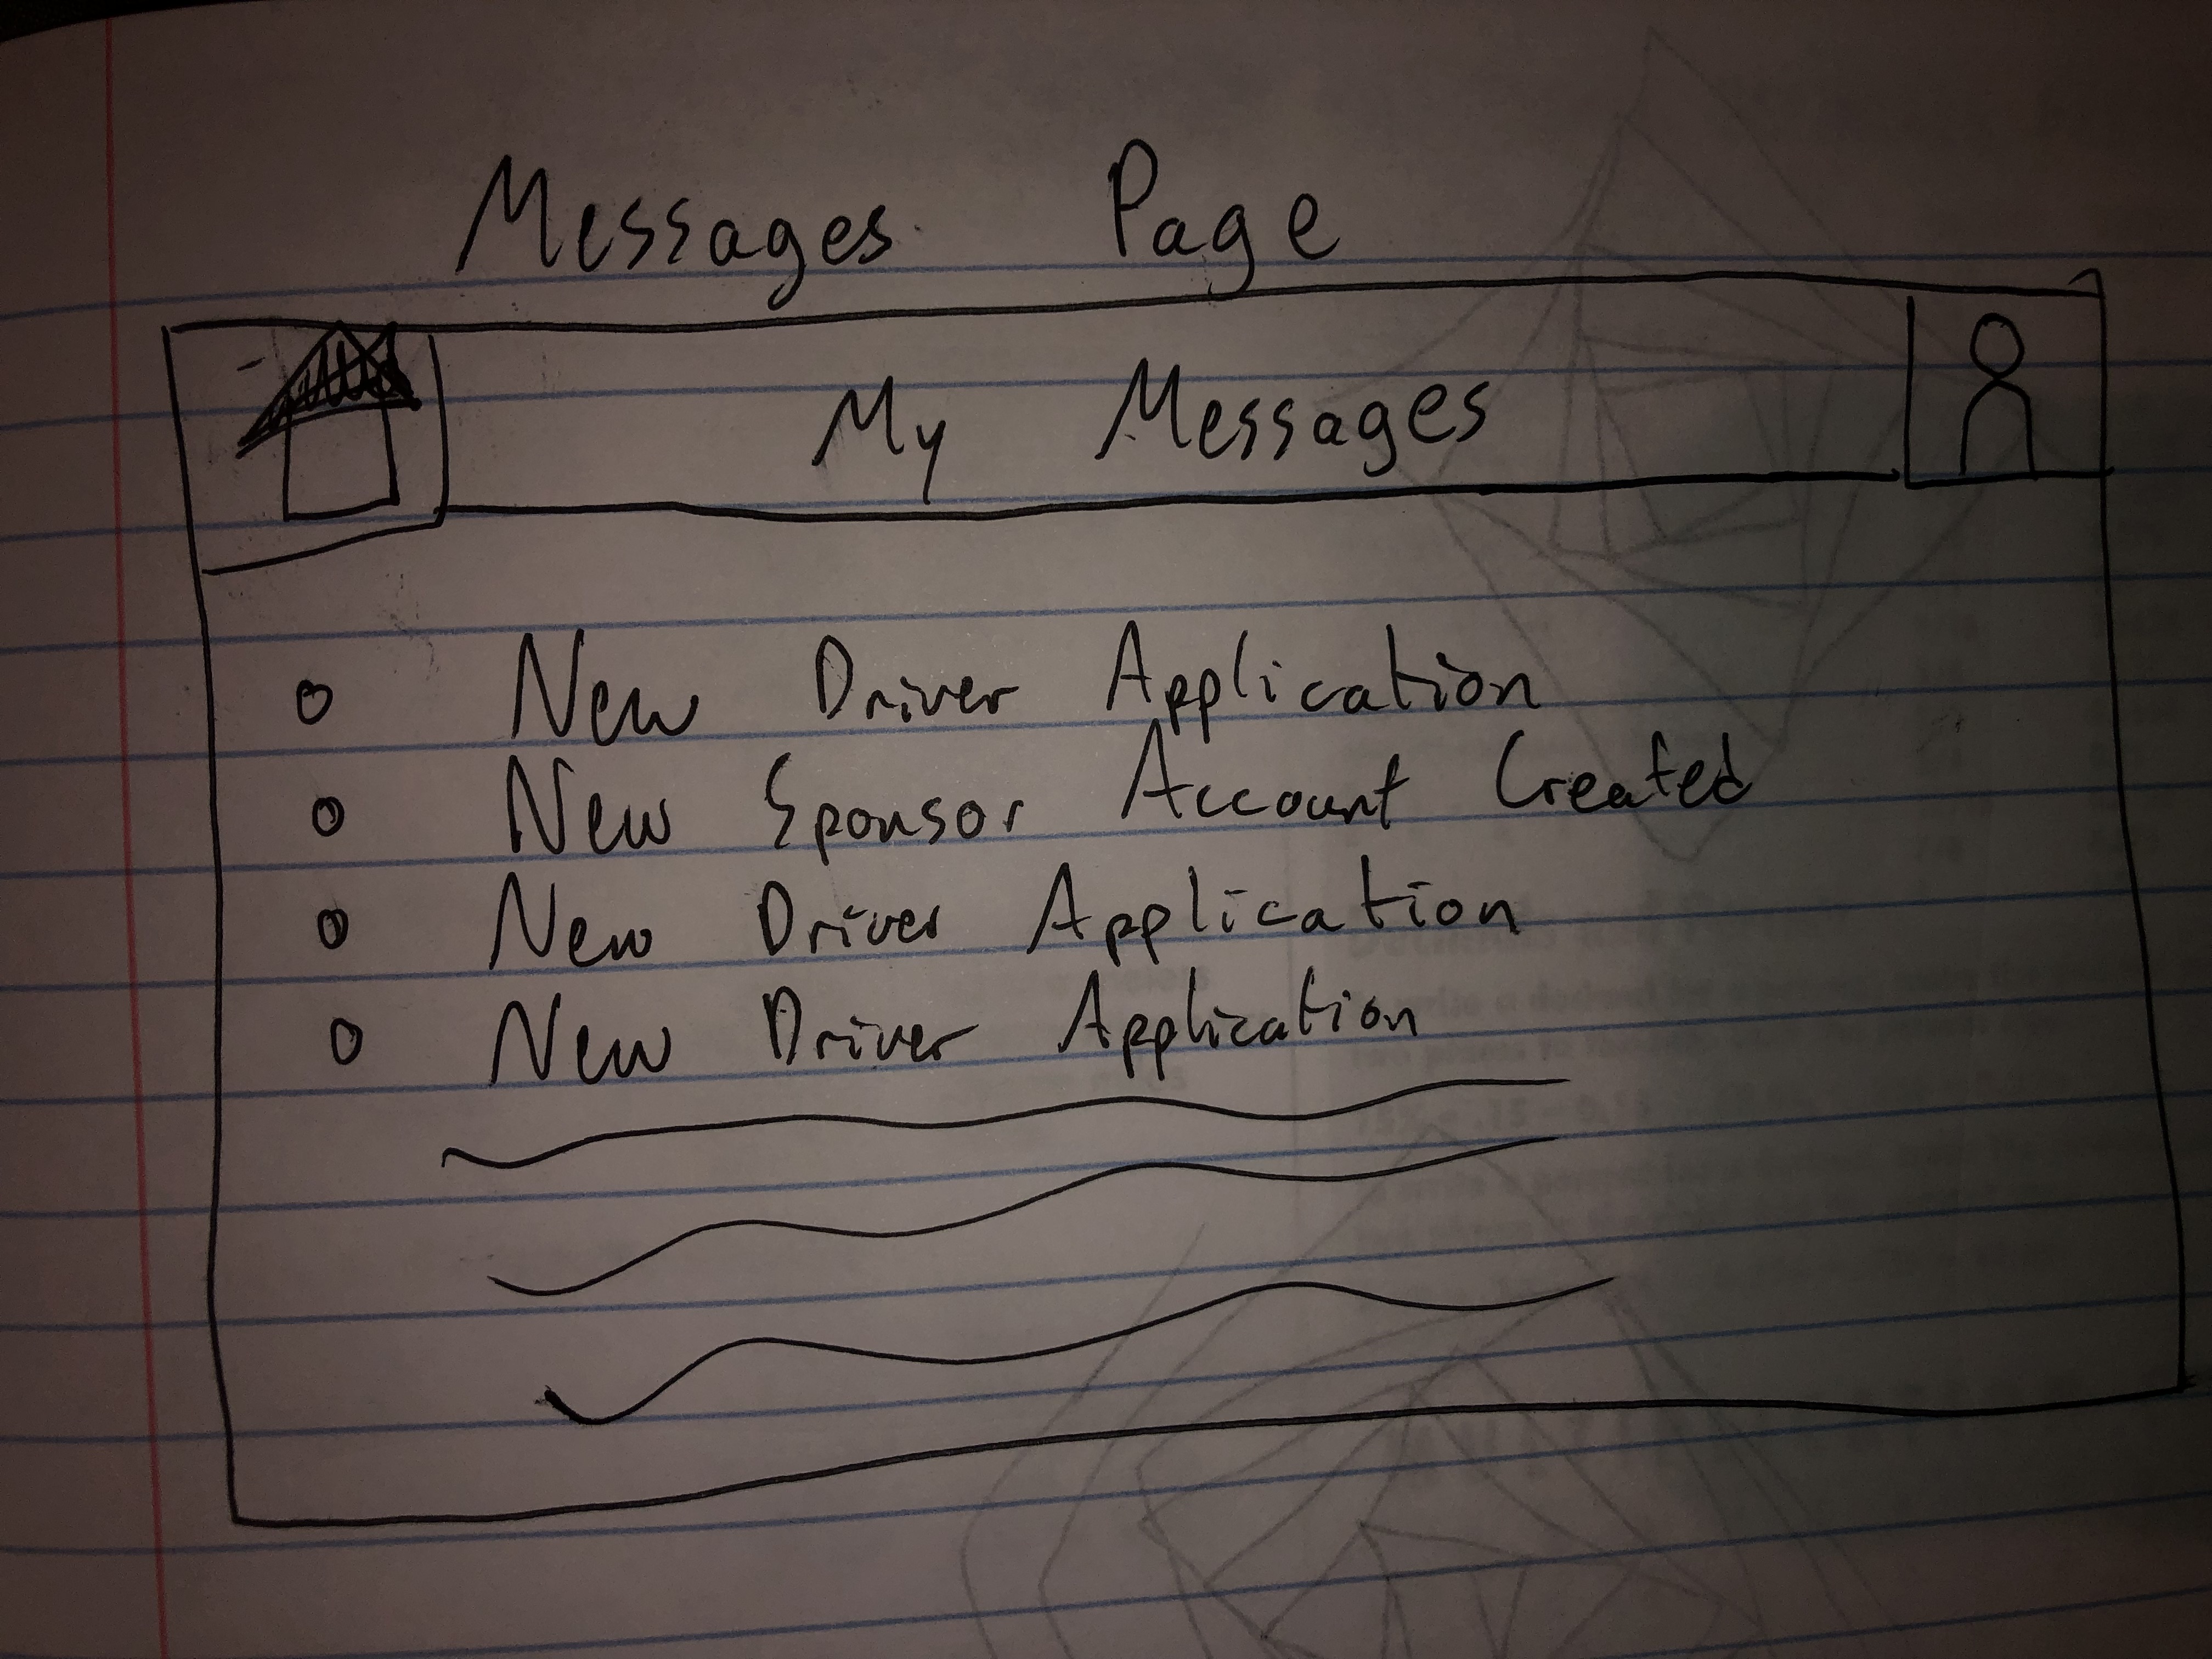 Messages Page
My Messages
New Driver Application
New Sponsor Account Created
New Driver Application
New Driver Application